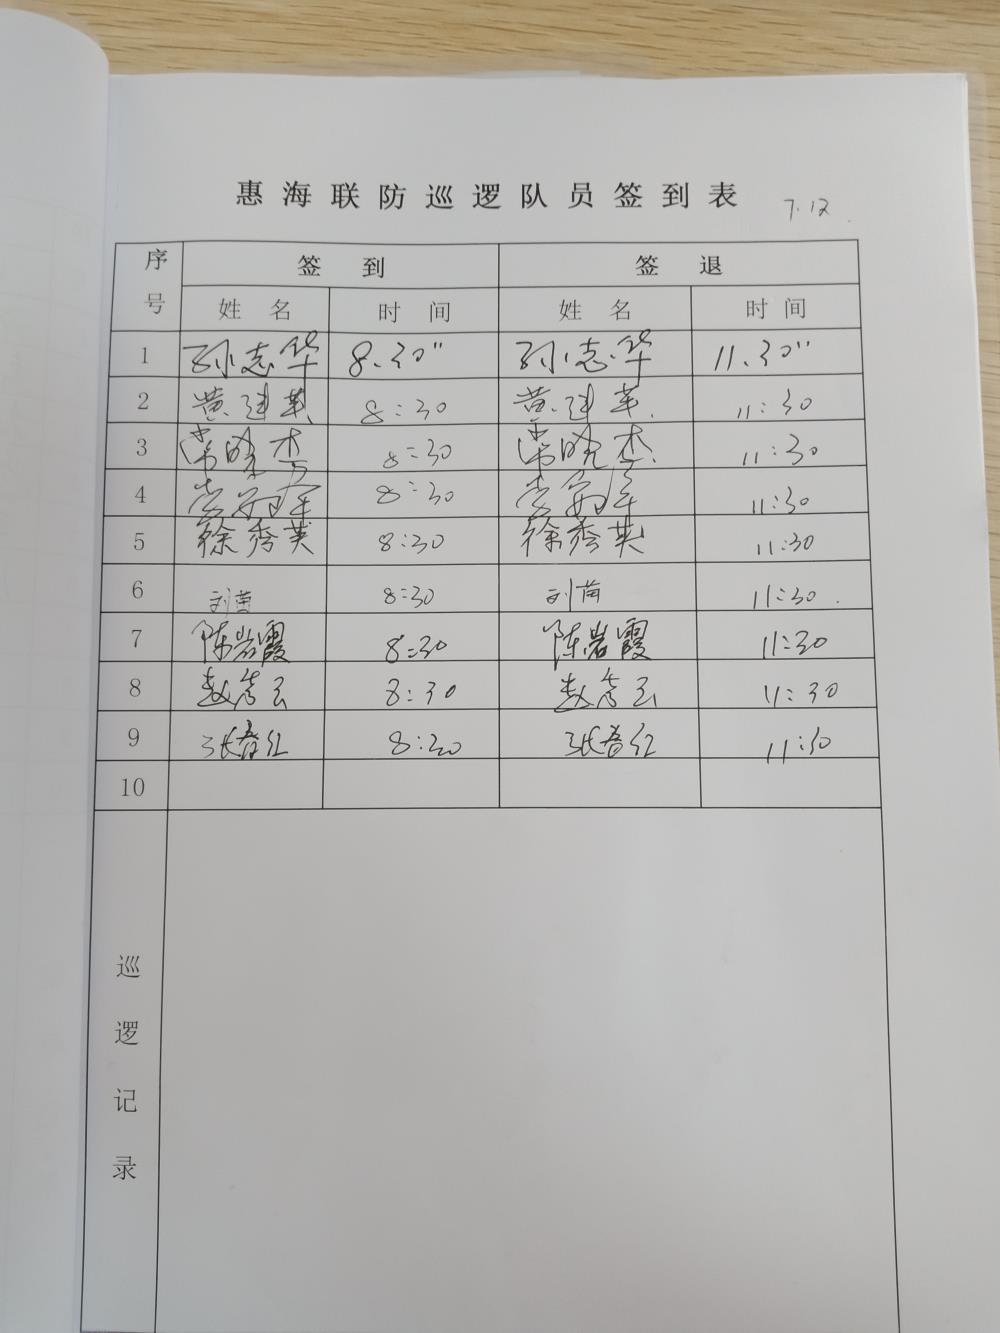 惠海联防巡逻队员签到表 7.12
序号 签到 签退
姓名 时间 姓名 时间
1 孙志华 8.30" 孙志华 11.30"
2 黄建英 8:30 黄建英 11:30
3 常晓杰 8:30 常晓杰 11:30
4 8:30 11:30
5 徐秀英 8:30 徐秀英 11:30
6 8:30 11:30
7 陈岩霞 8:30 陈岩霞 11:30
8 8:30 11:30
9 张春红 8:30 张春红 11:30
10
巡逻记录